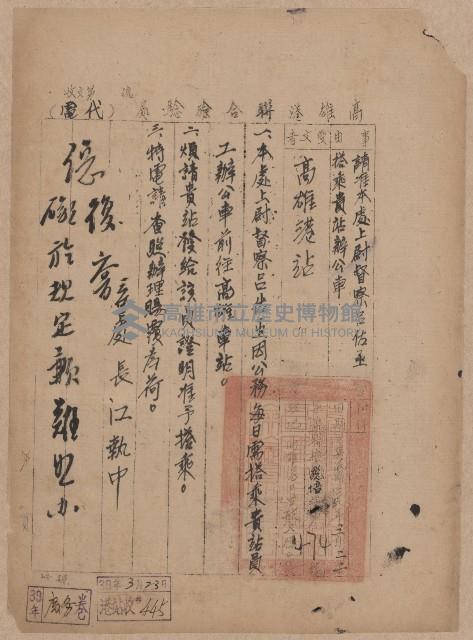 高雄港聯合檢驗處
（代電）
事由
請准本處上尉督察呂佑丞搭乘貴站辦公車
受文者
高雄港站
一、本處上尉督察呂佑丞因公務每日需搭乘貴站員
工辦公車前往高雄車站。
二、煩請貴站發給該員證明准予搭乘。
三、特電請查照辦理賜覆為荷。
處長江執中
復
礙於規定歉難照办
474
39年
卷
39年3月23日
港站收
445
高雄市立歷史博物館
KAOHSIUNG MUSEUM OF HISTORY